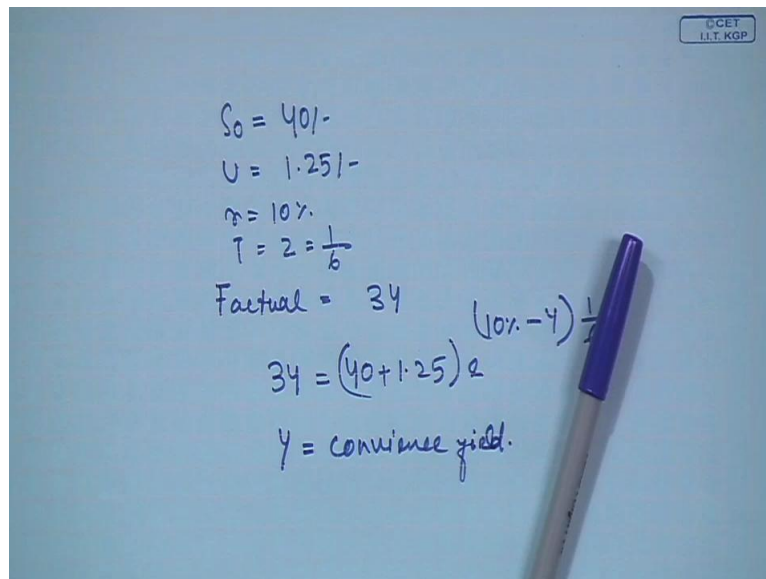 ©CET
I.I.T. KGP
S0 = 40/-
U = 1.25/-
r = 10%.
T = 2 = 1/6
Factual = 34
34 = (40+1.25) e (10% - Y) 1/
Y = convience yield.